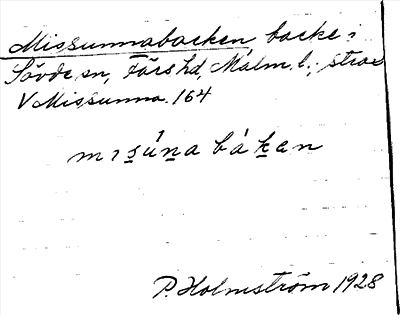 Missunnabacken backe i
Sövde sn, Färs hd, Malm. l., strax
V Missunna. 164
mısu̍na bákan
P. Holmström 1928